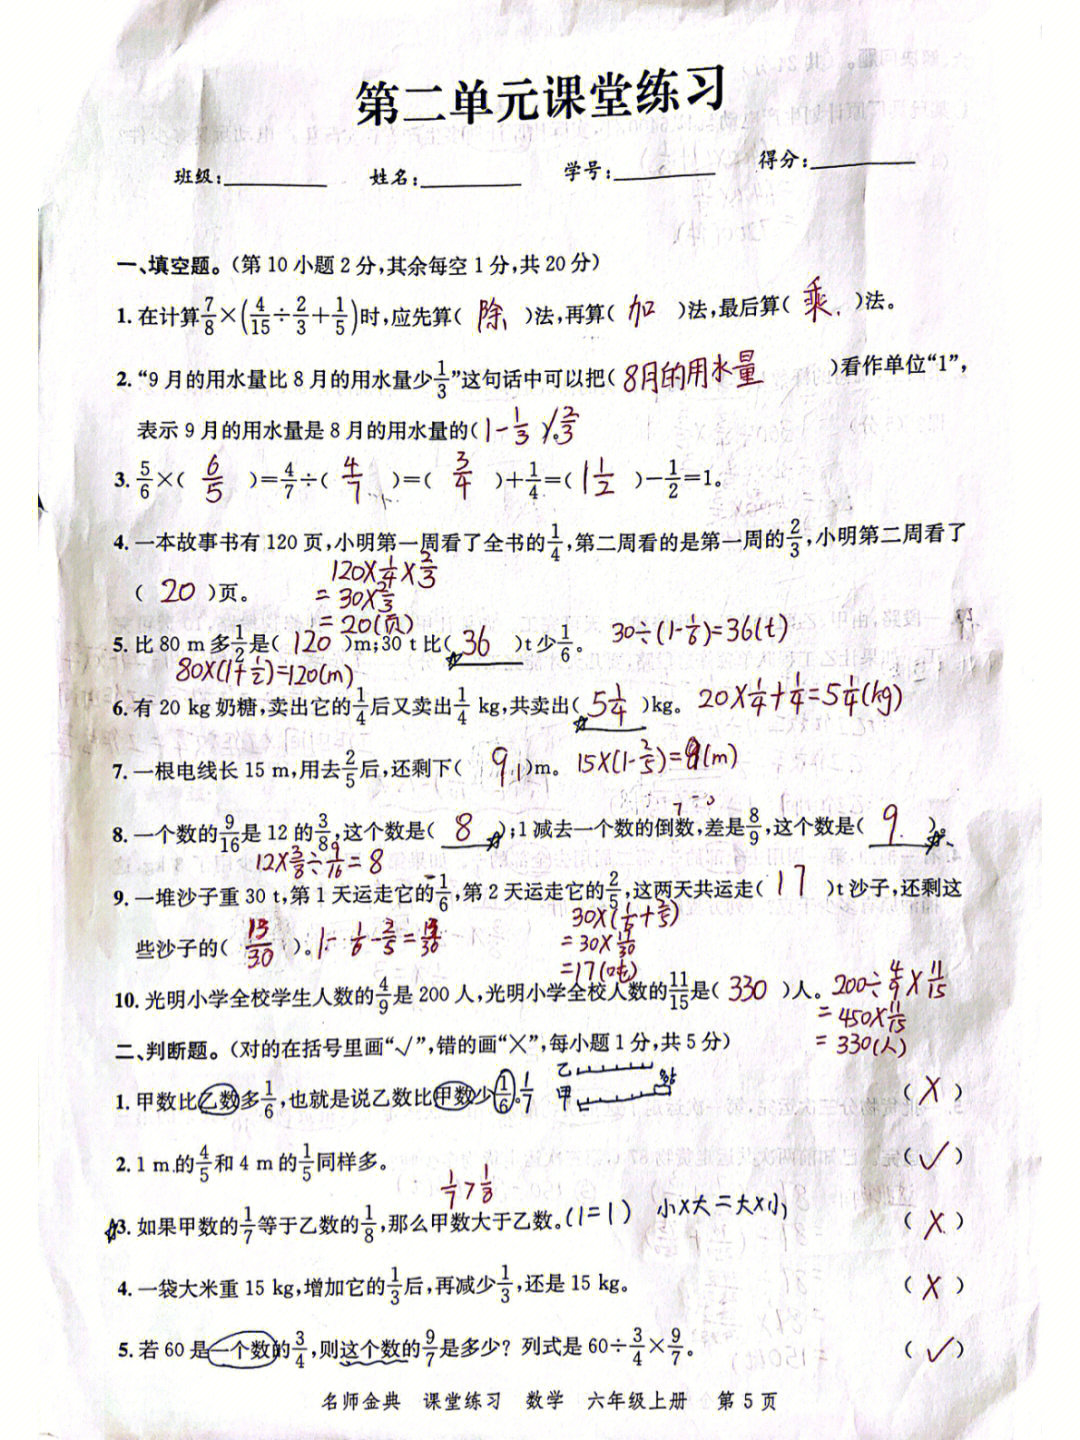 第二单元课堂练习
班级: 姓名: 学号: 得分:
一、填空题。(第10小题2分,其余每空1分,共20分)
1. 在计算7/8×(4/15÷2/3+1/5)时,应先算( 除 )法,再算( 加 )法,最后算( 乘 )法。
2. “9月的用水量比8月的用水量少1/3”这句话中可以把( 8月的用水量 )看作单位“1”,
表示9月的用水量是8月的用水量的( 1-1/3 )。/2/3
3. 5/6×( 6/5 )=4/7÷( 4/7 )=( 3/4 )+1/4=( 1 1/2 )-1/2=1。
4. 一本故事书有120页,小明第一周看了全书的1/4,第二周看的是第一周的2/3,小明第二周看了
( 20 )页。 120×1/4×2/3
=30×2/3
=20(页)
5. 比80 m多1/2是( 120 )m;30 t比( 36 )t少1/6。 30÷(1-1/6)=36(t)
80×(1+1/2)=120(m)
6. 有20 kg奶糖,卖出它的1/4后又卖出1/4 kg,共卖出( 5 1/4 )kg。 20×1/4+1/4=5 1/4(kg)
7. 一根电线长15 m,用去2/5后,还剩下( 9 )m。 15×(1-2/5)=9(m)
8. 一个数的9/16是12的3/8,这个数是( 8 );1减去一个数的倒数,差是8/9,这个数是( 9 )。
12×3/8÷9/16=8
9. 一堆沙子重30 t,第1天运走它的1/6,第2天运走它的2/5,这两天共运走( 17 )t沙子,还剩这
30×(1/6+2/5)
些沙子的( 13/30 )。 1-1/6-2/5=13/30 =30×17/30
=17(吨)
10. 光明小学全校学生人数的4/9是200人,光明小学全校人数的11/15是( 330 )人。 200÷4/9×11/15
=450×11/15
=330(人)
二、判断题。(对的在括号里画“√”,错的画“×”,每小题1分,共5分)
乙
1. 甲数比乙数多1/6,也就是说乙数比甲数少1/6。 1/7 甲 ( × )
2. 1 m的4/5和4 m的1/5同样多。 ( √ )
1/7>1/8
3. 如果甲数的1/7等于乙数的1/8,那么甲数大于乙数。(1=1) 小×大=大×小 ( × )
4. 一袋大米重15 kg,增加它的1/3后,再减少1/3,还是15 kg。 ( × )
5. 若60是一个数的3/4,则这个数的9/7是多少?列式是60÷3/4×9/7。 ( √ )
名师金典 课堂练习 数学 六年级上册 第5页